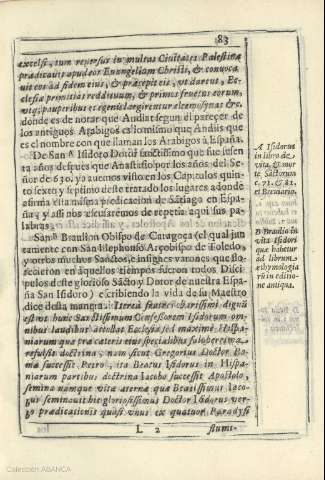 83
excelsi, cum reuersus in multas Ciuitates Palestinæ
prædicauit apud eos Euangelium Christi, & conuoca
uit eos ad fidem eius, & præcepit eis, vt darent, Ec-
clesiæ primitias reddituum, & primos fructus eorum,
vtq; pauperibus et egenis largirentur aleemosynas &c.
dónde es de notar que Andia segun el parecer de
los antiguos Arabigos es lo mismo que Andùs que
es el nombre con que llaman los Arabigos à España.
De San A Isidoro Dotor santissimo que fue jusen
ta años despues que Anastasio por los años del Se-
ñor de 630, ya auemos visto en los Capitulos quin-
to sexto y septimo deste tratado los lugares adonde
afirma esta misma predicacion de Santiago en Espa-
ña; y assi nos escusarèmos de repetir aqui sus pa-
labras.
San B Braulion Obispo de Caragoça (el qual jun
tamente con San Illephonso Arçobispo de Toledo,
y otros muchos Santos, e insignes varones que flo-
recieron en aquellos tiempos fueron todos Dici
pulos deste glorioso Sãcto y Dotor de nuestra Espa
ña San Isidoro) escribiendo la vida de su Maestro
dice desta manera. Iterea featre cbarissimi dignũ
est vt hunc Sanctissimum Confessorem Isidorum om-
nibus laudibus attollat Ecclesia sed maximè Hispa-
niarum quæ præ cæteris eius specialibus saluberrima
refulsit doctrina; nam sicut Gregorius Doctor Ro-
mæ successit Petro, ita Beatus Isidorus in Hispa-
niarum partibus doctrina Iacobo successit Apostolo,
semina namque vitæ æternæ quæ Beatissimus Iaco-
bus seminauit hic gloriosissimus Doctor Isidorus ver-
bo prædicationis quasi vnus ex quatuor Paradysi
L 2 flumi-
A Isidorus
in libro de
vita, & mor
te, Sãctorum
c. 71. & 81.
et Breuiario.
B Braulio in
vita Isidori
quæ habetur
ad librum
æthymologia
rũ in editio
ne antiqua.
Colección ABANCA